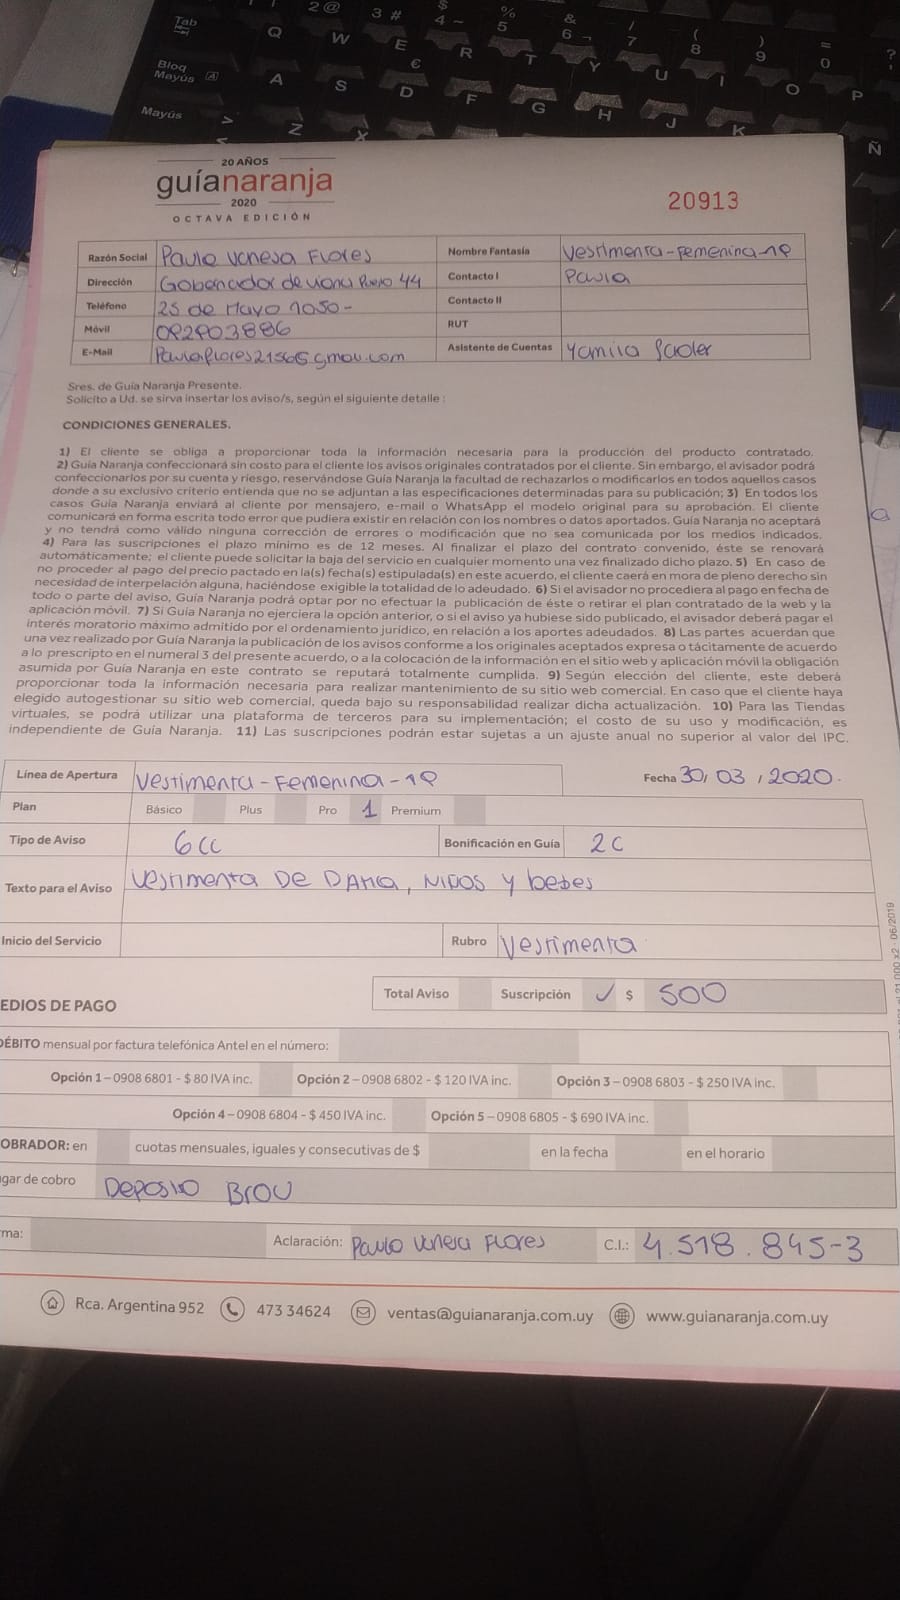 20 AÑOS
guíanaranja
2020
OCTAVA EDICIÓN
20913
Razón Social Paula Vanesa Flores
Nombre Fantasía Vestimenta-Femenina-1P
Dirección Gobernador de viana 44
Contacto I Paula
Teléfono 25 de Mayo 1050-
Contacto II
Móvil 092903886
RUT
E-Mail
Asistente de Cuentas Yamila
Sres. de Guía Naranja Presente.
Solicito a Ud. se sirva insertar los aviso/s, según el siguiente detalle :
CONDICIONES GENERALES.
1) El cliente se obliga a proporcionar toda la información necesaria para la producción del producto contratado.
2) Guía Naranja confeccionará sin costo para el cliente los avisos originales contratados por el cliente. Sin embargo, el avisador podrá
confeccionarlos por su cuenta y riesgo, reservándose Guía Naranja la facultad de rechazarlos o modificarlos en todos aquellos casos
donde a su exclusivo criterio entienda que no se adjuntan a las especificaciones determinadas para su publicación; 3) En todos los
casos Guía Naranja enviará al cliente por mensajero, e-mail o WhatsApp el modelo original para su aprobación. El cliente
comunicará en forma escrita todo error que pudiera existir en relación con los nombres o datos aportados. Guía Naranja no aceptará
y no tendrá como válido ninguna corrección de errores o modificación que no sea comunicada por los medios indicados.
4) Para las suscripciones el plazo mínimo es de 12 meses. Al finalizar el plazo del contrato convenido, éste se renovará
automáticamente; el cliente puede solicitar la baja del servicio en cualquier momento una vez finalizado dicho plazo. 5) En caso de
no proceder al pago del precio pactado en la(s) fecha(s) estipulada(s) en este acuerdo, el cliente caerá en mora de pleno derecho sin
necesidad de interpelación alguna, haciéndose exigible la totalidad de lo adeudado. 6) Si el avisador no procediera al pago en fecha de
todo o parte del aviso, Guía Naranja podrá optar por no efectuar la publicación de éste o retirar el plan contratado de la web y la
aplicación móvil. 7) Si Guía Naranja no ejerciera la opción anterior, o si el aviso ya hubiese sido publicado, el avisador deberá pagar el
interés moratorio máximo admitido por el ordenamiento jurídico, en relación a los aportes adeudados. 8) Las partes acuerdan que
una vez realizado por Guía Naranja la publicación de los avisos conforme a los originales aceptados expresa o tácitamente de acuerdo
a lo prescripto en el numeral 3 del presente acuerdo, o a la colocación de la información en el sitio web y aplicación móvil la obligación
asumida por Guía Naranja en este contrato se reputará totalmente cumplida. 9) Según elección del cliente, este deberá
proporcionar toda la información necesaria para realizar mantenimiento de su sitio web comercial. En caso que el cliente haya
elegido autogestionar su sitio web comercial, queda bajo su responsabilidad realizar dicha actualización. 10) Para las Tiendas
virtuales, se podrá utilizar una plataforma de terceros para su implementación; el costo de su uso y modificación, es
independiente de Guía Naranja. 11) Las suscripciones podrán estar sujetas a un ajuste anual no superior al valor del IPC.
Línea de Apertura Vestimenta-Femenina-1P
Fecha 30/03/2020.
Plan Básico Plus Pro 1 Premium
Tipo de Aviso 6cc Bonificación en Guía 2c
Texto para el Aviso Vestimenta De Dama, Niños y bebes
Inicio del Servicio Rubro Vestimenta
Total Aviso Suscripción ✓ $ 500
EDIOS DE PAGO
ÉBITO mensual por factura telefónica Antel en el número:
Opción 1 – 0908 6801 - $ 80 IVA inc. Opción 2 – 0908 6802 - $ 120 IVA inc. Opción 3 – 0908 6803 - $ 250 IVA inc.
Opción 4 – 0908 6804 - $ 450 IVA inc. Opción 5 – 0908 6805 - $ 690 IVA inc.
OBRADOR: en cuotas mensuales, iguales y consecutivas de $ en la fecha en el horario
gar de cobro Deposito Brou
rma: Aclaración: Paula Vanesa Flores C.I.: 4.518.845-3
Rca. Argentina 952 473 34624 ventas@guianaranja.com.uy www.guianaranja.com.uy